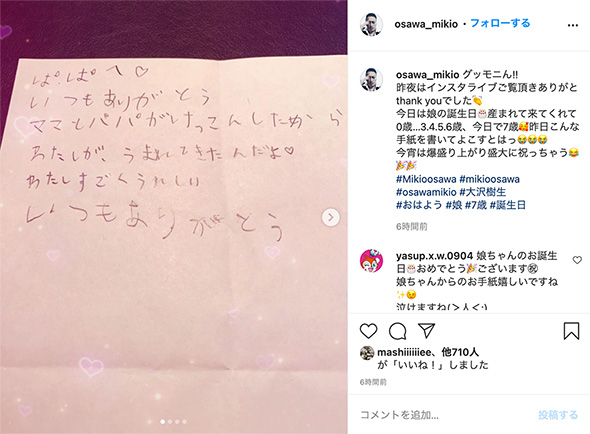 ぱ.ぱへ♡
いつもありがとう
ママとパパがけっこんしたから
わたしが、うまれてきたんだよ♡
わたしすごくうれしい
いつもありがとう
osawa_mikio • フォローする
osawa_mikio グッモニん!!
昨夜はインスタライブご覧頂きありがと
thank youでした👏
今日は娘の誕生日🎂産まれて来てくれて
0歳...3.4.5.6歳、今日で7歳🥰昨日こんな
手紙を書いてよこすとはっ😭😭😭
今宵は爆盛り上がり盛大に祝っちゃう😂
🎉🎉
#Mikioosawa #mikioosawa
#osawamikio #大沢樹生
#おはよう #娘 #7歳 #誕生日
6時間前
yasup.x.w.0904 娘ちゃんのお誕生
日🎂おめでとう🎉ございます㊗
娘ちゃんからのお手紙嬉しいですね
✨😆
泣けますね(>人<;)
mashiiiiiiee、他710人
が「いいね！」しました
6時間前
コメントを追加... 投稿する